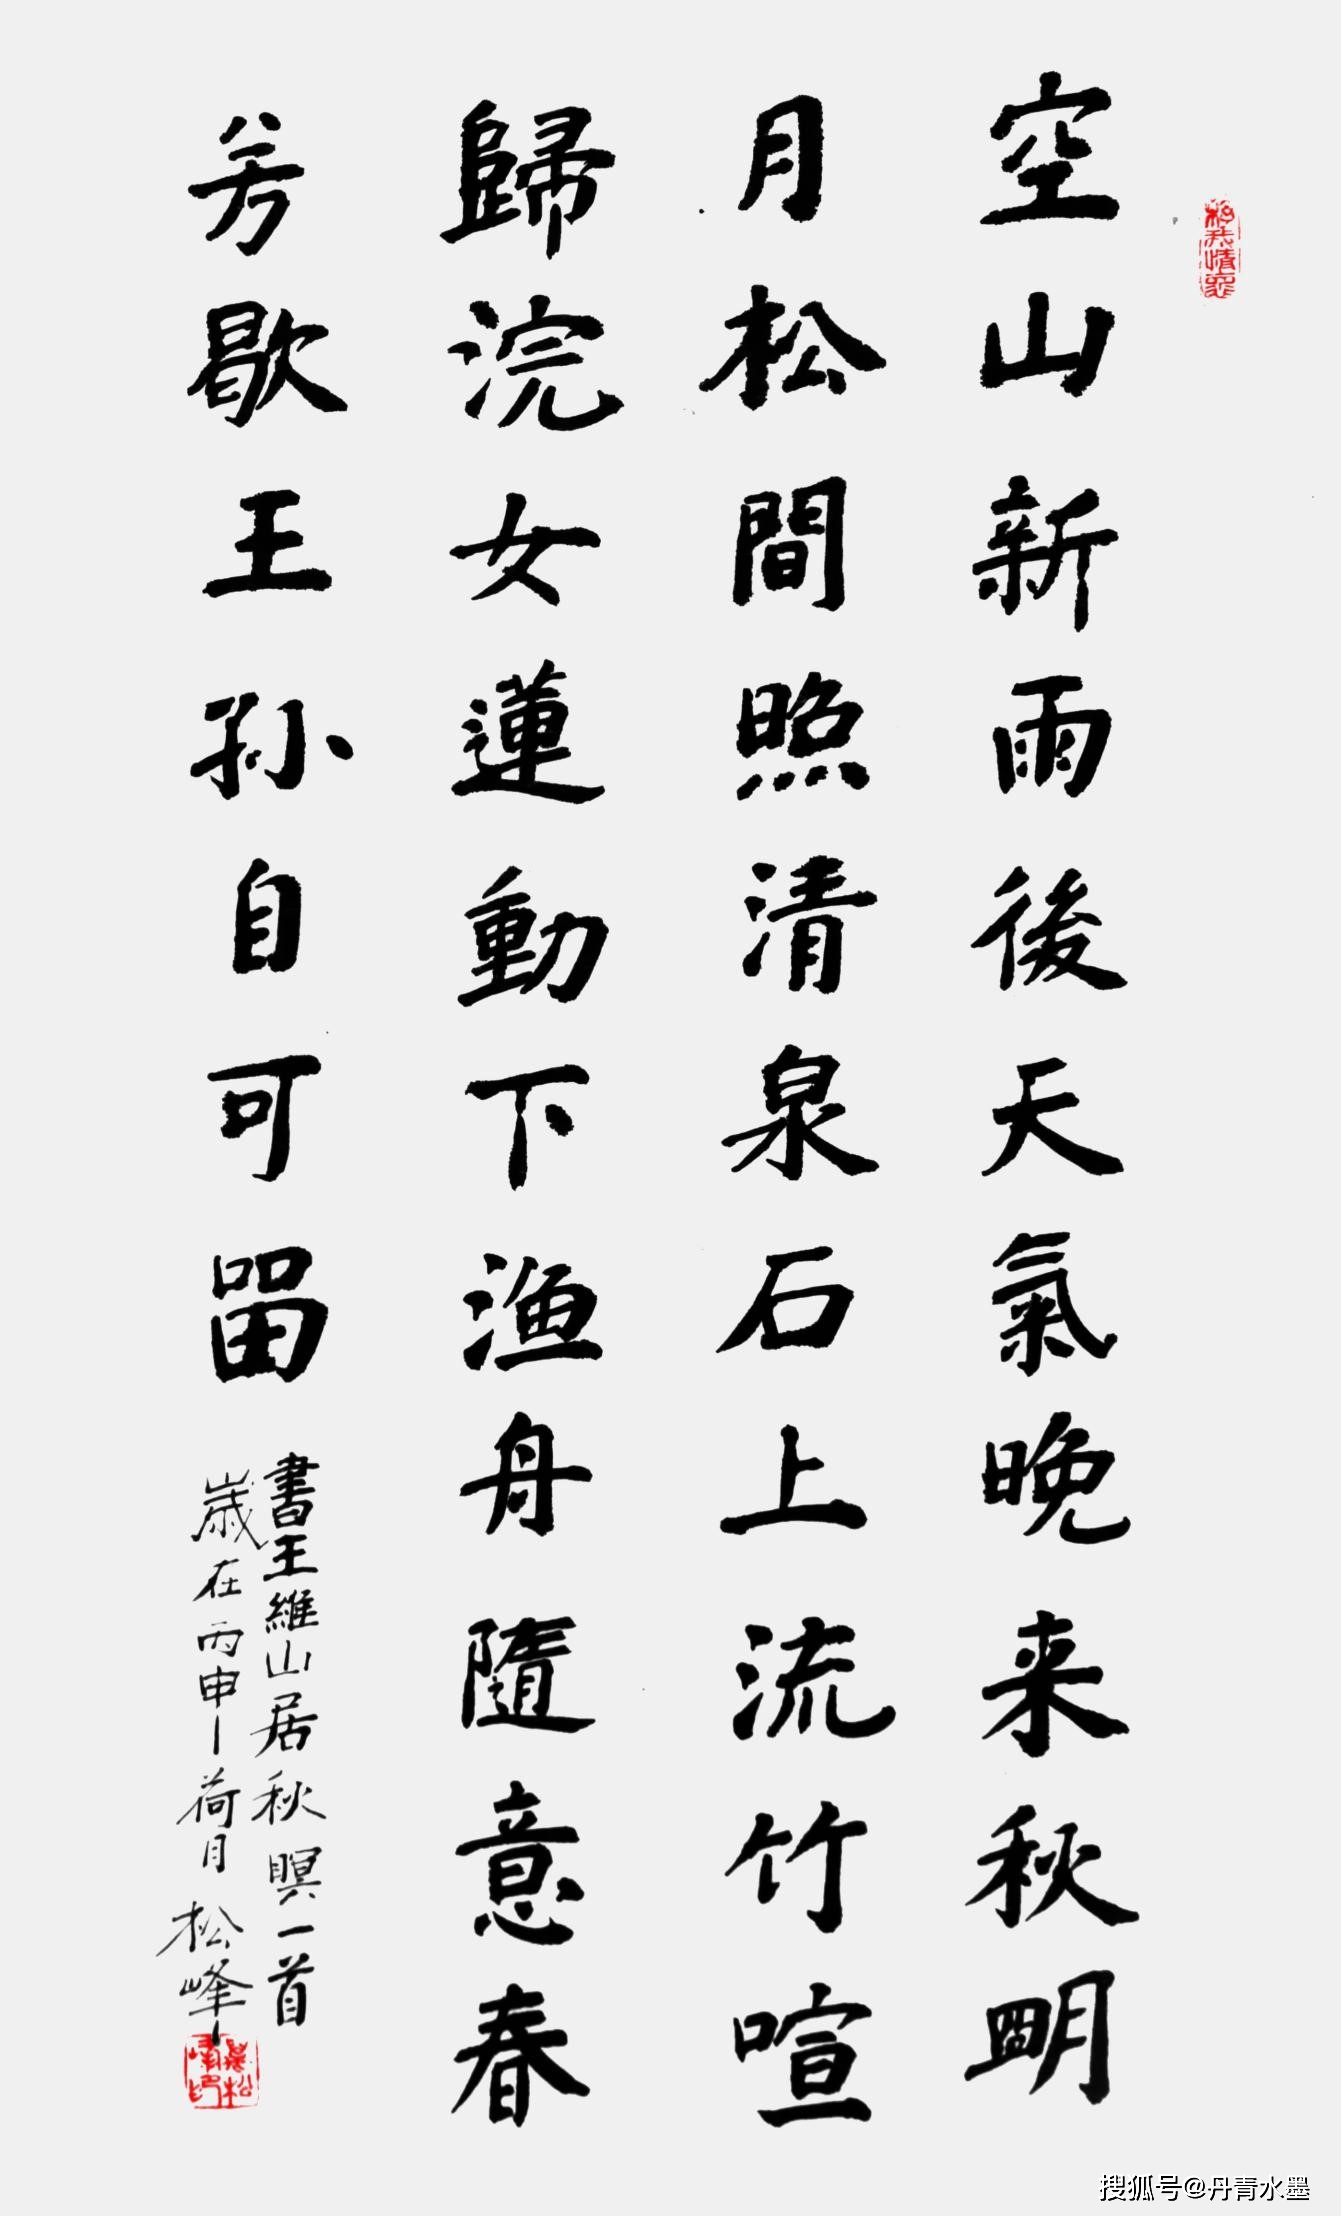 空山新雨後天氣晚来秋明
月松間照清泉石上流竹喧
歸浣女蓮動下渔舟隨意春
芳歇王孙自可留
書王維山居秋瞑一首
歲在丙申荷月松峰
搜狐号@丹青水墨